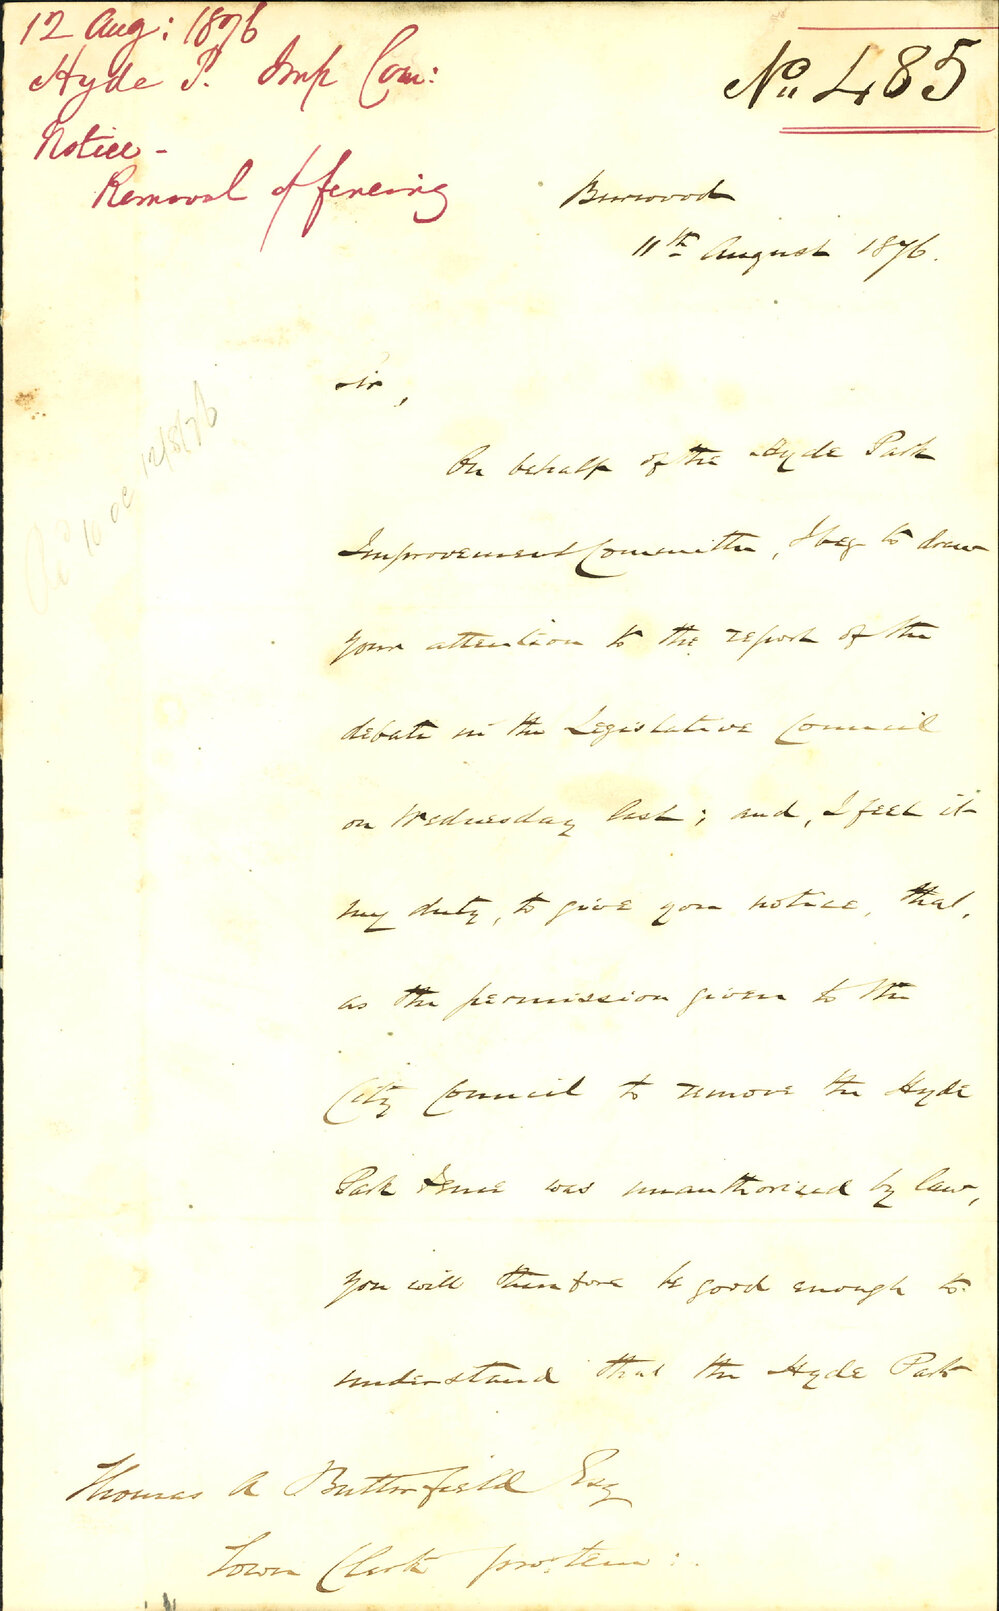 12 Aug: 1876
Hyde P. Imp Com:
Notice -
Removal of fencing
No. 485
Burwood
11th August 1876.
Sir,
On behalf of the Hyde Park
Improvement Committee, I beg to draw
your attention to the report of the
debate in the Legislative Council
on Wednesday last; and, I feel it
my duty, to give you notice, that,
as the permission given to the
City Council to remove the Hyde
Park Fence was unauthorised by law,
you will therefore be good enough to
understand that the Hyde Park
Thomas A Butterfield Esq
Town Clerk pro: tem:.
12/8/76